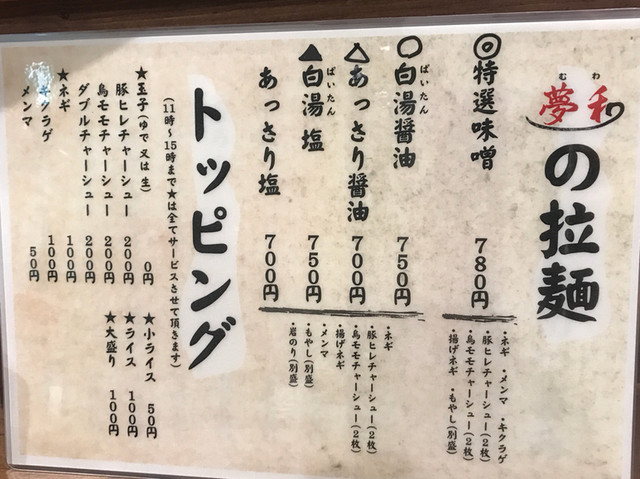 むわ
夢和
の拉麺
◎特選味噌 780円
・ネギ ・メンマ ・キクラゲ
・豚ヒレチャーシュー(2枚)
・鳥モモチャーシュー(2枚)
・揚げネギ ・もやし(別盛)
ぱいたん
○白湯醤油 750円
△あっさり醤油 700円
ぱいたん
▲白湯 塩 750円
あっさり塩 700円
・ネギ
・豚ヒレチャーシュー(2枚)
・鳥モモチャーシュー(2枚)
・揚げネギ
・メンマ
・もやし(別盛)
・岩のり(別盛)
トッピング
(11時〜15時まで★は全てサービスさせて頂きます)
★玉子(ゆで又は生) 0円
豚ヒレチャーシュー 200円
鳥モモチャーシュー 200円
ダブルチャーシュー 200円
★ネギ 100円
キクラゲ 100円
メンマ 50円
★小ライス 50円
★ライス 100円
★大盛り 100円